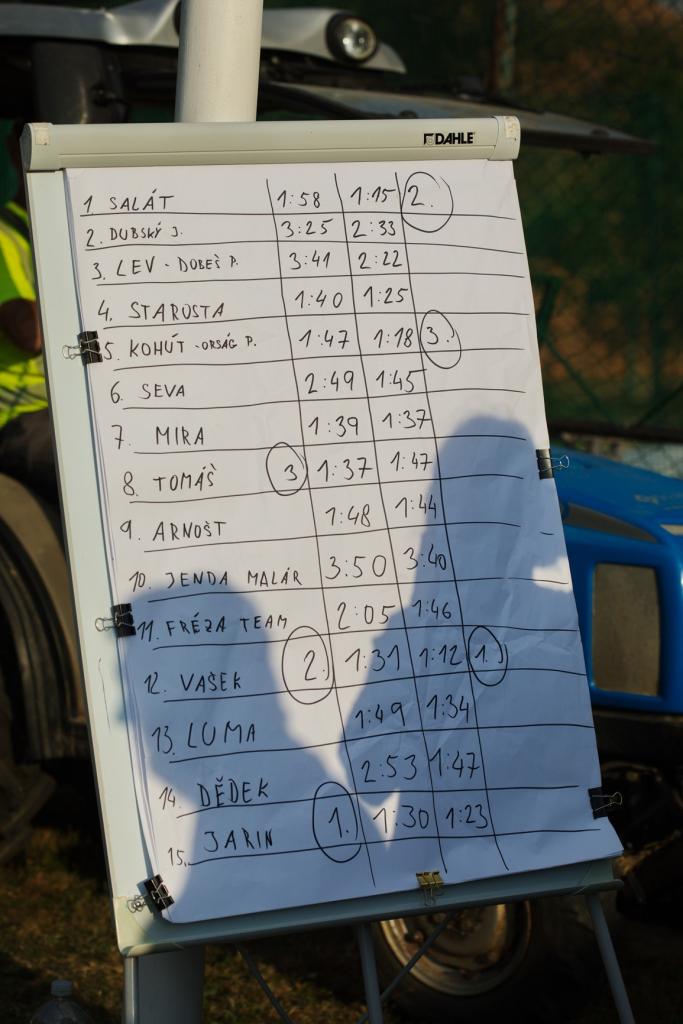 DAHLE
1. SALÁT 1:58 1:15 2.
2. DUBSKÝ J. 3:25 2:33
3. LEV - DOBEŠ P. 3:41 2:22
4. STAROSTA 1:40 1:25
5. KOHÚT - ORSÁG P. 1:47 1:18 3.
6. SEVA 2:49 1:45
7. MIRA 1:39 1:37
8. TOMÁŠ 3 1:37 1:47
9. ARNOŠT 1:48 1:44
10. JENDA MALÁR 3:50 3:40
11. FRÉZA TEAM 2:05 1:46
12. VAŠEK 2. 1:31 1:12 1.
13. LUMA 1:49 1:34
14. DĚDEK 2:53 1:47
15. JARIN 1. 1:30 1:23